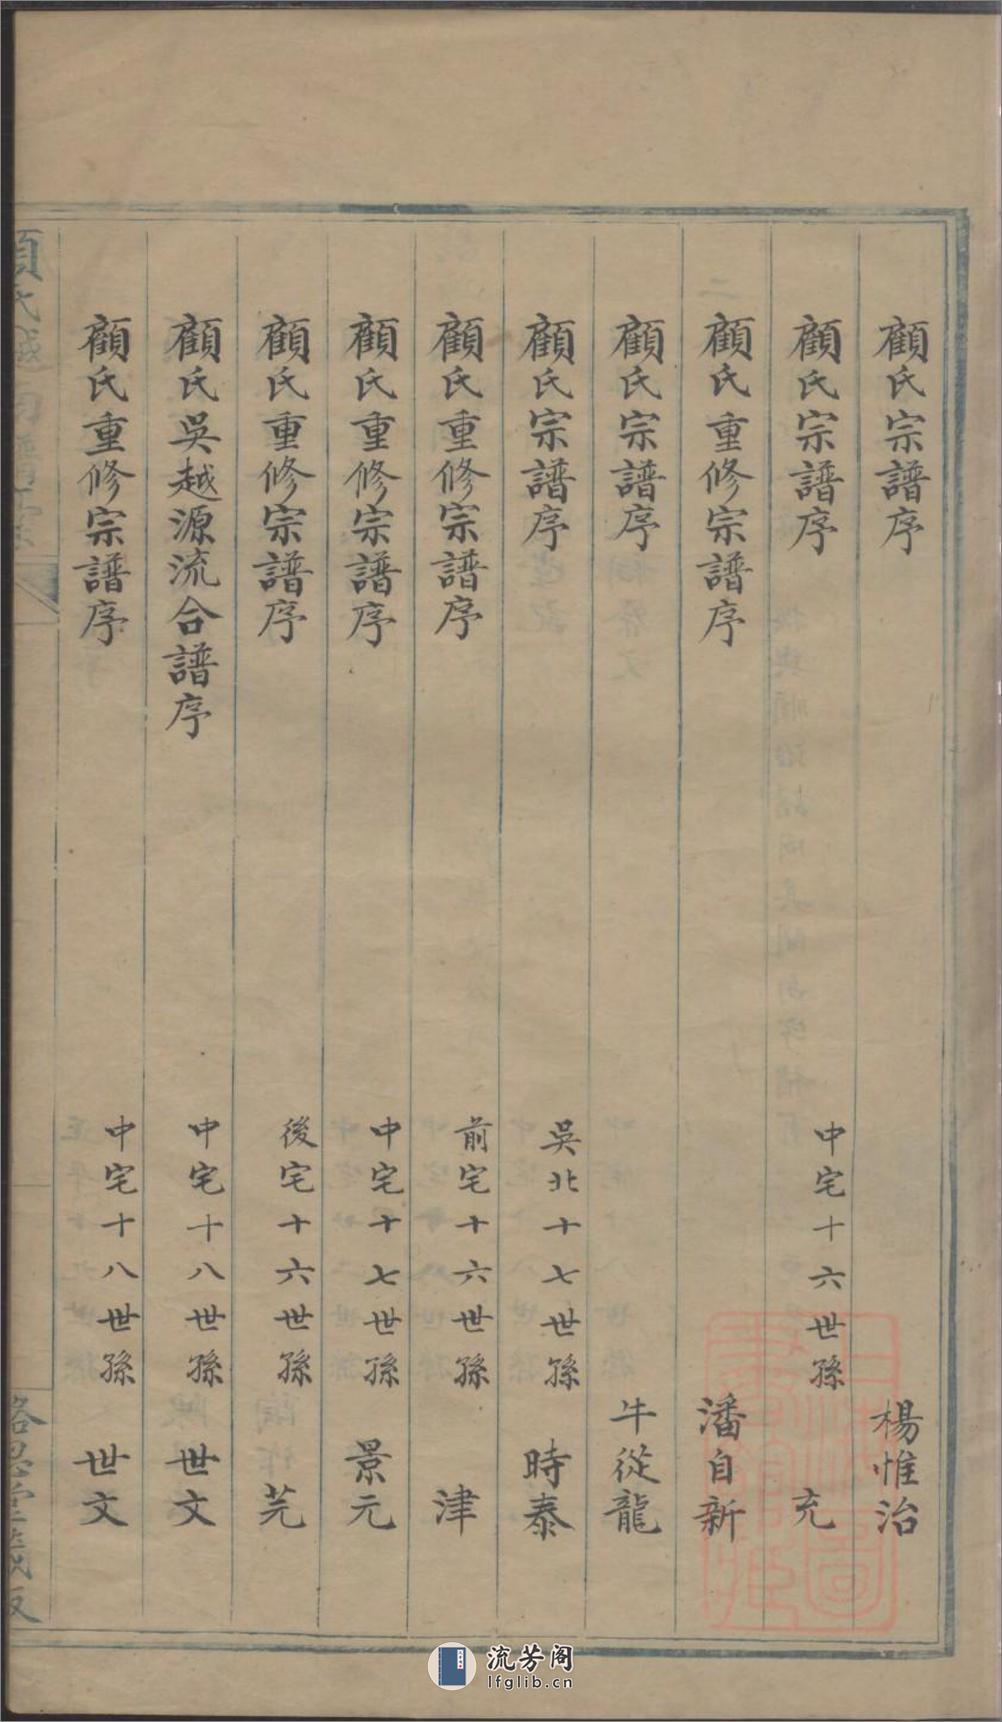 顧氏宗譜序 楊惟治
顧氏宗譜序 中宅十六世孫 充
顧氏重修宗譜序 潘自新
顧氏宗譜序 牛從龍
顧氏宗譜序 吳北十七世孫 時泰
顧氏重修宗譜序 前宅十六世孫 津
顧氏重修宗譜序 中宅十七世孫 景元
顧氏重修宗譜序 後宅十六世孫 芫
顧氏吳越源流合譜序 中宅十八世孫 世文
顧氏重修宗譜序 中宅十八世孫 世文
流芳阁
lfglib.cn